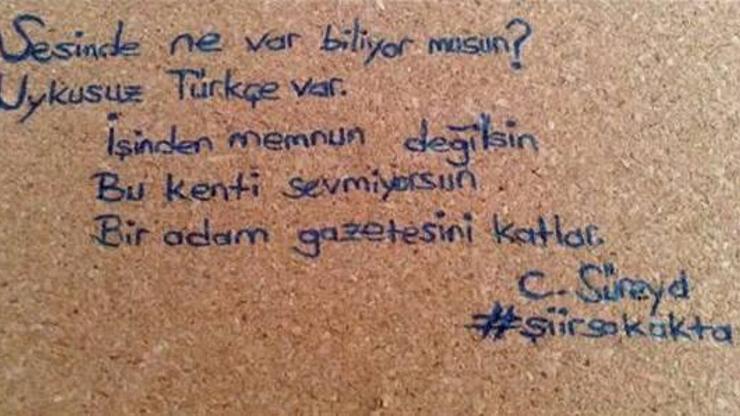 Sesinde ne var biliyor musun?
Uykusuz Türkçe var.
İşinden memnun değilsin
Bu kenti sevmiyorsun
Bir adam gazetesini katlar.
C. Süreyd
#şiirsokakta